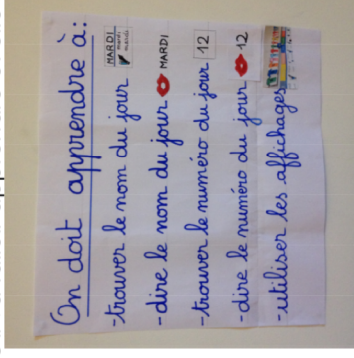 On doit apprendre à:
-trouver le nom du jour MARDI mardi mardi
-dire le nom du jour MARDI
-trouver le numéro du jour 12
-dire le numéro du jour 12
-utiliser les affichages